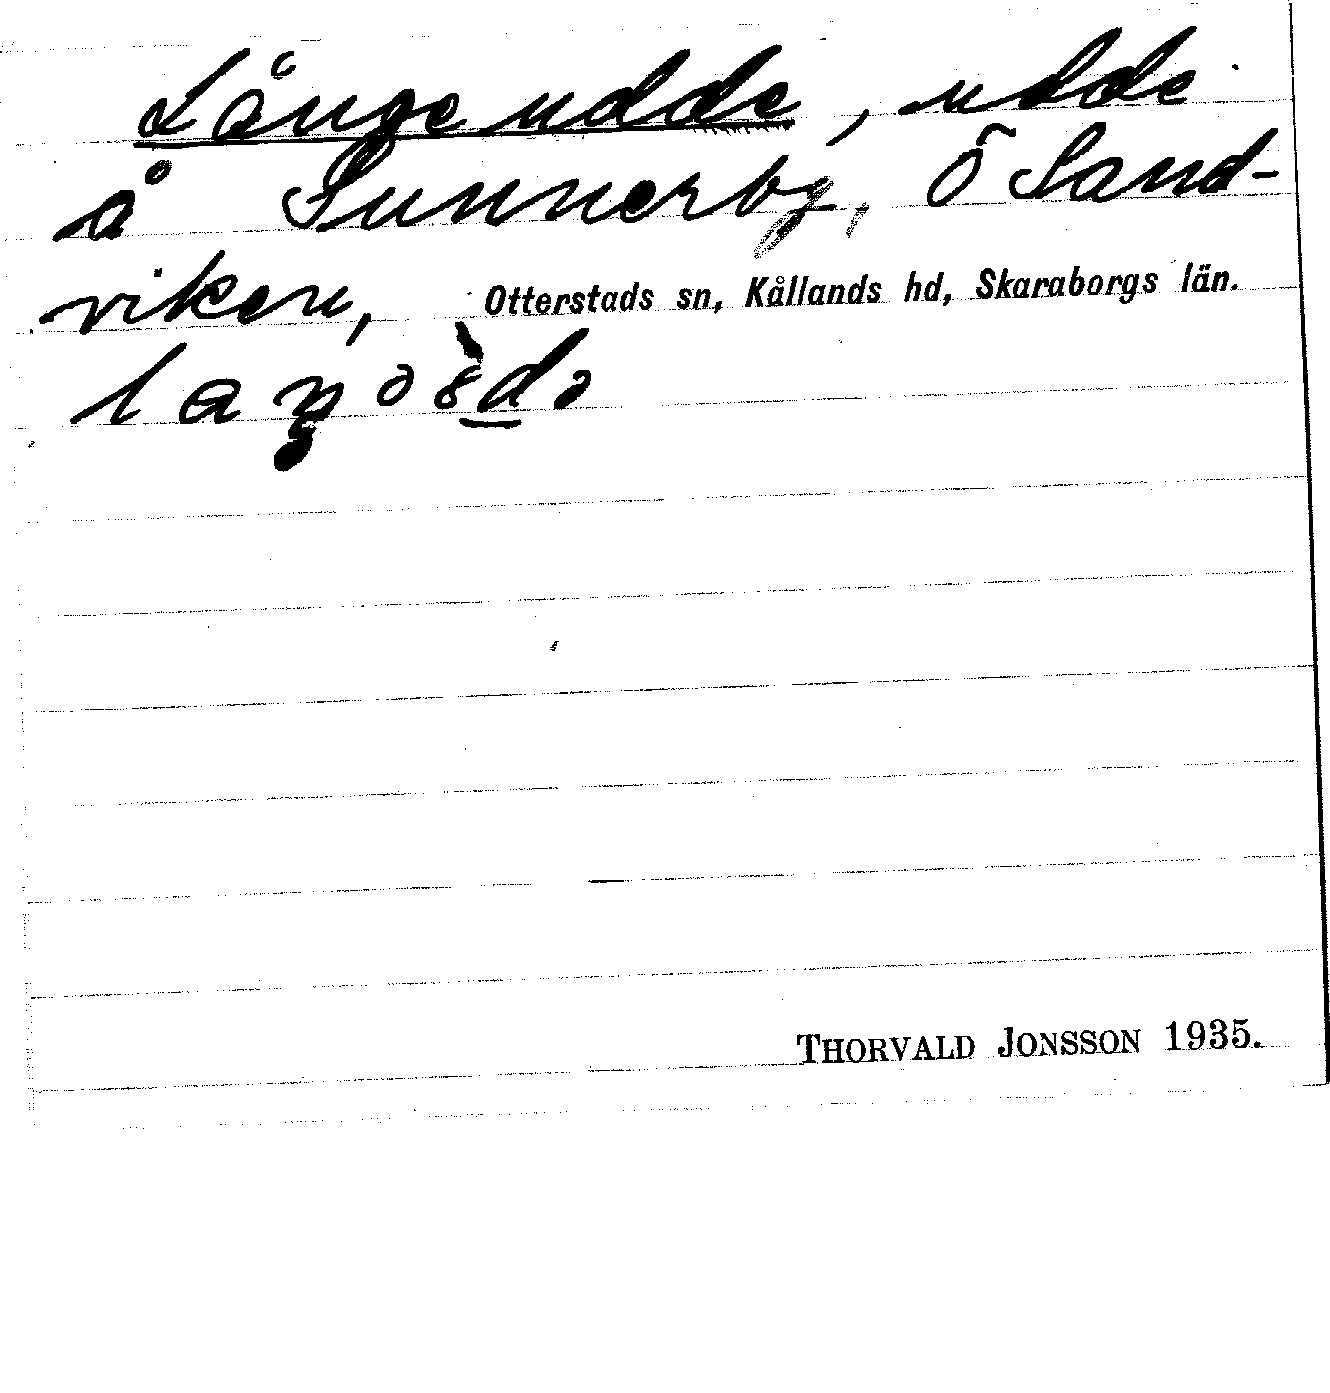 Långe udde, udde
å Sunnerby, Ö Sand-
viken, Otterstads sn, Kållands hd, Skaraborgs län.
THORVALD JONSSON 1935.